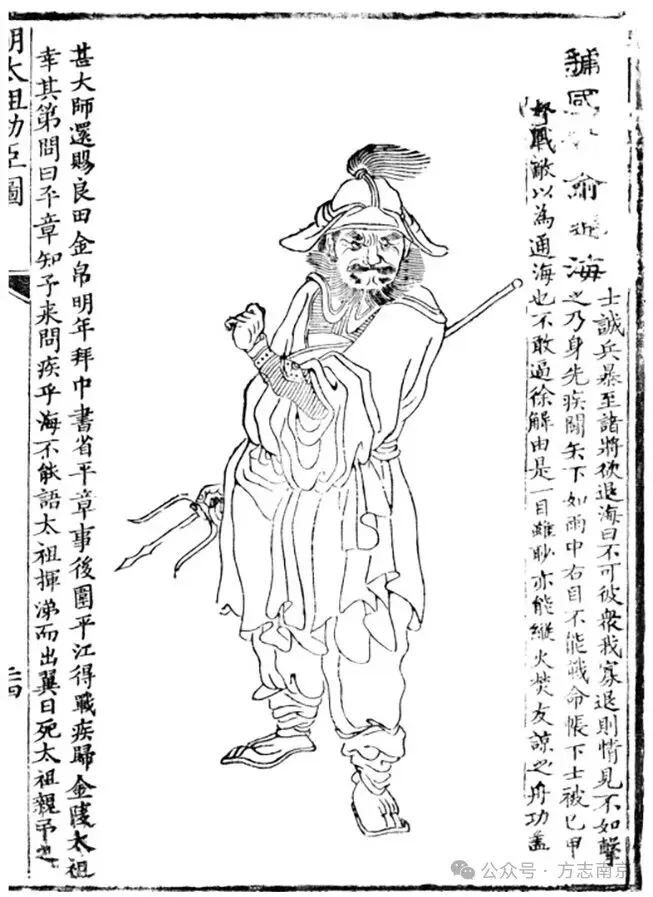 輔國俞通海
士誠兵暴至諸將欲退海曰不可彼衆我寡退則情見不如擊
之乃身先疾鬪矢下如雨中右目不能戰命帳下士被己甲
戰敵以為通海也不敢逼徐解由是一目雖眇亦能縱火焚友諒之舟功蓋
甚大師還賜良田金帛明年拜中書省平章事後圍平江得戰疾歸金陵太祖
幸其第問曰平章知予來問疾乎海不能語太祖揮涕而出翼日死太祖親弔之
明太祖功臣圖
公众号·方志南京